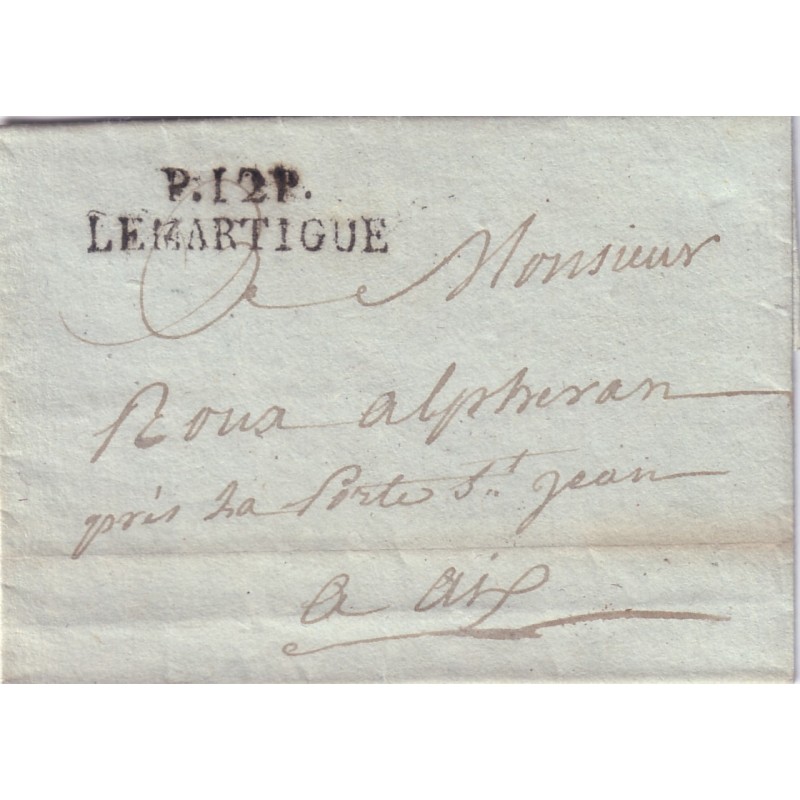 P.12P.
LEMARTIGUE
a Monsieur
Roux alpheran
près La Porte St. jean
a aix